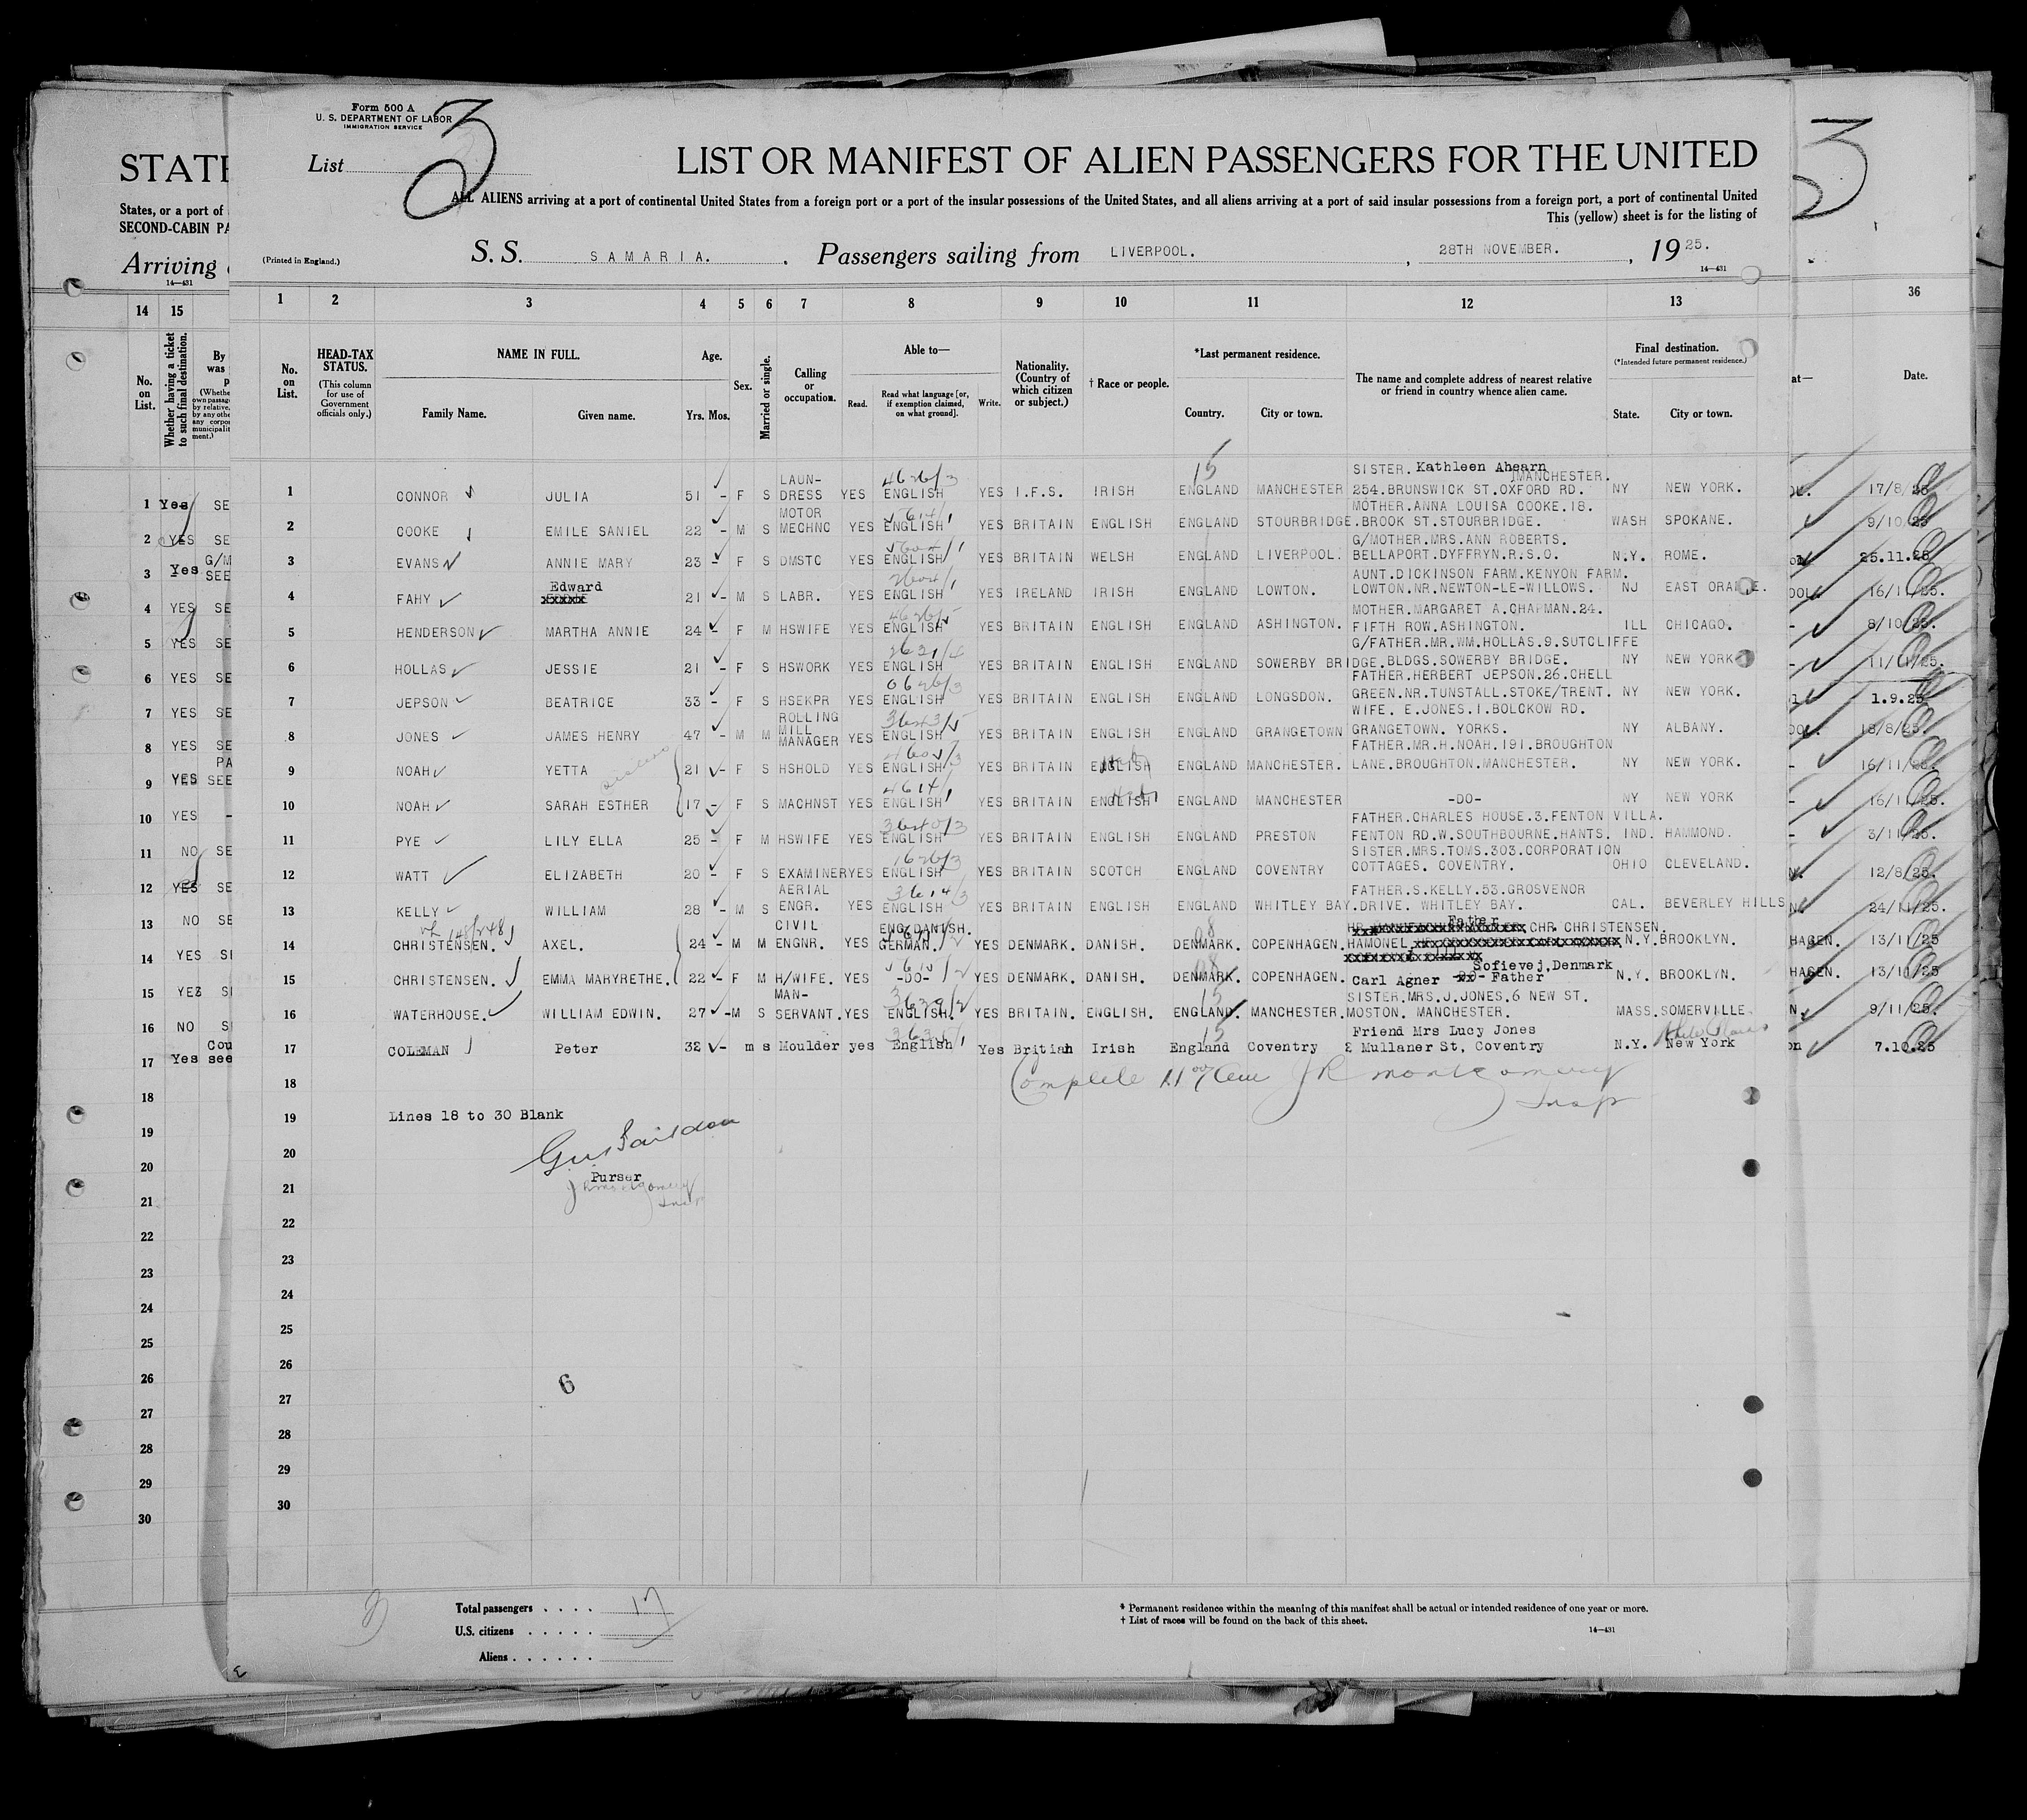 Form 500 A
U. S. DEPARTMENT OF LABOR
IMMIGRATION SERVICE
List 3
STATE
LIST OR MANIFEST OF ALIEN PASSENGERS FOR THE UNITED
3
ALL ALIENS arriving at a port of continental United States from a foreign port or a port of the insular possessions of the United States, and all aliens arriving at a port of said insular possessions from a foreign port, a port of continental United
This (yellow) sheet is for the listing of
States, or a port of
SECOND-CABIN PA
Arriving
14—431
(Printed in England.)
S. S. SAMARIA. , Passengers sailing from LIVERPOOL. , 28TH NOVEMBER. , 1925.
14—431
14 15 1 2 3 4 5 6 7 8 9 10 11 12 13 36
No. on List.
Whether having a ticket to such final destination.
No. on List.
HEAD-TAX STATUS.
(This column for use of Government officials only.)
NAME IN FULL.
Family Name. Given name.
Age.
Yrs. Mos.
Sex.
Married or single.
Calling or occupation.
Able to—
Read. Read what language [or, if exemption claimed, on what ground]. Write.
Nationality. (Country of which citizen or subject.)
† Race or people.
*Last permanent residence.
Country. City or town.
The name and complete address of nearest relative or friend in country whence alien came.
Final destination.
(*Intended future permanent residence.)
State. City or town.
Date.
1 CONNOR JULIA 51 - F S LAUN-DRESS YES ENGLISH YES I.F.S. IRISH ENGLAND MANCHESTER SISTER. Kathleen Ahearn 254.BRUNSWICK ST.OXFORD RD. MANCHESTER. NY NEW YORK. 17/8/25
2 COOKE EMILE SANIEL 22 - M S MOTOR MECHNC YES ENGLISH YES BRITAIN ENGLISH ENGLAND STOURBRIDGE. MOTHER.ANNA LOUISA COOKE.18. BROOK ST.STOURBRIDGE. WASH SPOKANE. 9/10/25
3 EVANS ANNIE MARY 23 - F S DMSTC YES ENGLISH YES BRITAIN WELSH ENGLAND LIVERPOOL. G/MOTHER.MRS.ANN ROBERTS. BELLAPORT.DYFFRYN.R.S.O. N.Y. ROME. 25.11.25
4 FAHY Edward 21 - M S LABR. YES ENGLISH YES IRELAND IRISH ENGLAND LOWTON. AUNT.DICKINSON FARM.KENYON FARM. LOWTON.NR.NEWTON-LE-WILLOWS. NJ EAST ORANGE. 16/11/25.
5 HENDERSON MARTHA ANNIE 24 - F M HSWIFE YES ENGLISH YES BRITAIN ENGLISH ENGLAND ASHINGTON. MOTHER.MARGARET A.CHAPMAN.24. FIFTH ROW.ASHINGTON. ILL CHICAGO. 8/10/25.
6 HOLLAS JESSIE 21 - F S HSWORK YES ENGLISH YES BRITAIN ENGLISH ENGLAND SOWERBY BRIDGE. G/FATHER.MR.WM.HOLLAS.9.SUTCLIFFE BLDGS.SOWERBY BRIDGE. NY NEW YORK 11/11/25.
7 JEPSON BEATRICE 33 - F S HSEKPR YES ENGLISH YES BRITAIN ENGLISH ENGLAND LONGSDON. FATHER.HERBERT JEPSON.26.CHELL GREEN.NR.TUNSTALL.STOKE/TRENT. NY NEW YORK. 1.9.25
8 JONES JAMES HENRY 47 - M M ROLLING MILL MANAGER YES ENGLISH YES BRITAIN ENGLISH ENGLAND GRANGETOWN WIFE. E.JONES.1.BOLCKOW RD. GRANGETOWN. YORKS. NY ALBANY. 13/8/25.
9 NOAH YETTA sisters 21 - F S HSHOLD YES ENGLISH YES BRITAIN ENGLISH ENGLAND MANCHESTER. FATHER.MR.H.NOAH.191.BROUGHTON LANE.BROUGHTON.MANCHESTER. NY NEW YORK. 16/11/25.
10 NOAH SARAH ESTHER 17 - F S MACHNST YES ENGLISH YES BRITAIN ENGLISH ENGLAND MANCHESTER -DO- NY NEW YORK 16/11/25.
11 PYE LILY ELLA 25 - F M HSWIFE YES ENGLISH YES BRITAIN ENGLISH ENGLAND PRESTON FATHER.CHARLES HOUSE.3.FENTON VILLA. FENTON RD.W.SOUTHBOURNE.HANTS. IND. HAMMOND. 3/11/25.
12 WATT ELIZABETH 20 - F S EXAMINER YES ENGLISH YES BRITAIN SCOTCH ENGLAND COVENTRY SISTER.MRS.TOMS.303.CORPORATION COTTAGES. COVENTRY. OHIO CLEVELAND. 12/8/25.
13 KELLY WILLIAM 28 - M S AERIAL ENGR. YES ENGLISH YES BRITAIN ENGLISH ENGLAND WHITLEY BAY. FATHER.S.KELLY.53.GROSVENOR DRIVE. WHITLEY BAY. CAL. BEVERLEY HILLS 24/11/25.
14 CHRISTENSEN. AXEL. 24 - M M CIVIL ENGNR. YES ENG.DANISH. GERMAN. YES DENMARK. DANISH. DENMARK. COPENHAGEN. Father CHR CHRISTENSEN. HAMONEL N.Y. BROOKLYN. 13/11/25
15 CHRISTENSEN. EMMA MARYRETHE. 22 - F M H/WIFE. YES -DO- YES DENMARK. DANISH. DENMARK. COPENHAGEN. Carl Agner Father Sofievej, Denmark N.Y. BROOKLYN. 13/11/25
16 WATERHOUSE. WILLIAM EDWIN. 27 - M S MAN-SERVANT. YES ENGLISH. YES BRITAIN. ENGLISH. ENGLAND. MANCHESTER. SISTER.MRS.J.JONES.6 NEW ST. MOSTON. MANCHESTER. MASS. SOMERVILLE. 9/11/25.
17 COLEMAN Peter 32 - m s Moulder yes English Yes British Irish England Coventry Friend Mrs Lucy Jones 2 Mullaner St, Coventry N.Y. New York 7.10.25
18 Complete JR Montgomery Insp
19 Lines 18 to 30 Blank
20
Purser
JR Montgomery Insp
21
22
23
24
25
26
6
27
28
29
30
Total passengers . . . . 17
U.S. citizens . . . . .
Aliens . . . . . .
* Permanent residence within the meaning of this manifest shall be actual or intended residence of one year or more.
† List of races will be found on the back of this sheet.
14—431